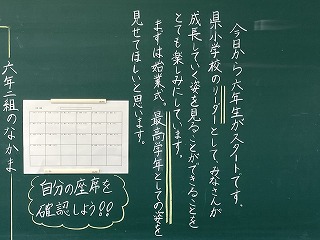 今日から六年生がスタートです。
県小学校のリーダーとしてみなさんが
成長していく姿を見ることができることを
とても楽しみにしています。
まずは始業式、最高学年としての姿を
見せてほしいと思います。
自分の座席を
確認しよう!!
六年二組のなかま